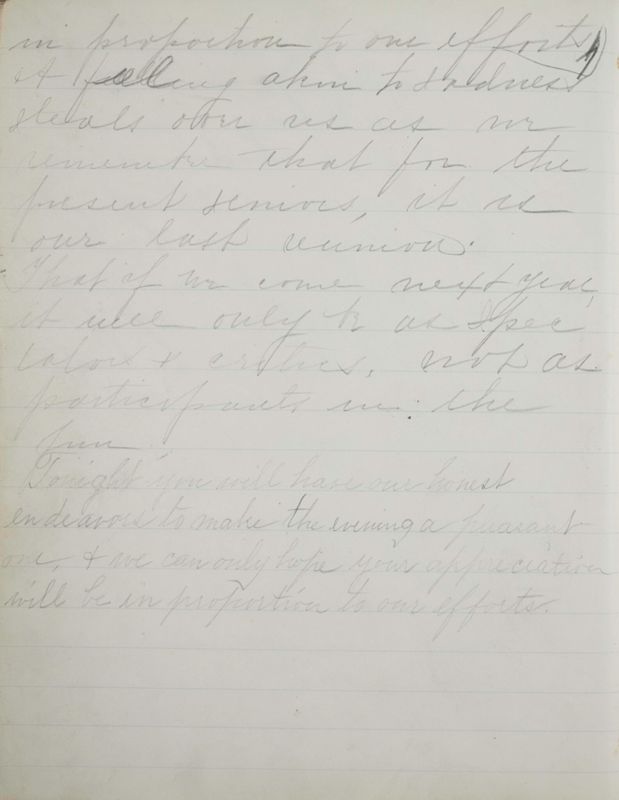 in proportion to our efforts
A feeling akin to sadness
steals over us as we
remember that for the
present seniors, it is
our last reunion.
That if we come next year,
it will only be as spec
tators & critics, not as
participants in the
fun.
Tonight you will have our honest
endeavors to make the evening a pleasant
one, & we can only hope your appreciation
will be in proportion to our efforts.